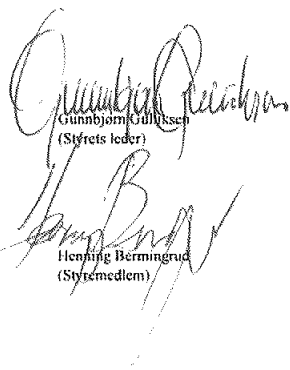 Gunnbjørn Gulliksen
(Styrets leder)
Henning Bermingrud
(Styremedlem)